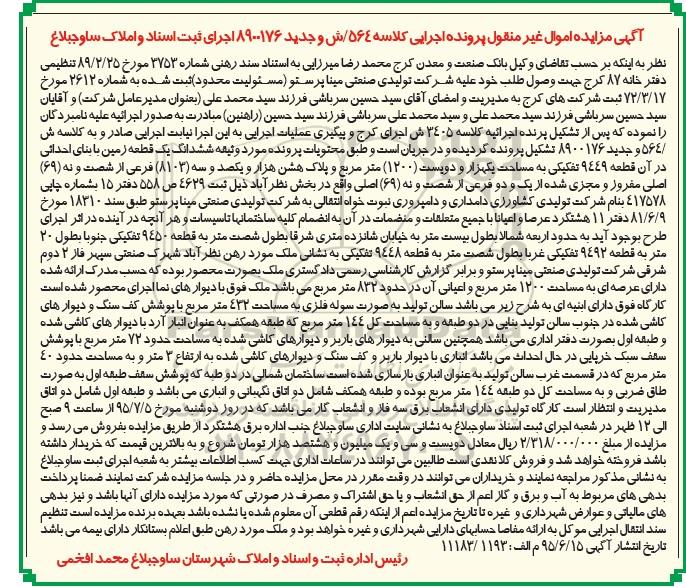 آگهی مزایده اموال غیر منقول پرونده اجرایی کلاسه ۵۶۴/ش و جدید ۸۹۰۰۱۷۶ اجرای ثبت اسناد و املاک ساوجبلاغ
نظر به اینکه بر حسب تقاضای وکیل بانک صنعت و معدن کرج محمد رضا میرزایی به استناد سند رهنی شماره ۳۷۵۳ مورخ ۸۹/۲/۲۵ تنظیمی
دفتر خانه ۸۷ کرج جهت وصول طلب خود علیه شرکت تولیدی صنعتی مینا پرستو (مسئولیت محدود)ثبت شده به شماره ۲۶۱۲ مورخ
۷۲/۳/۱۷ ثبت شرکت های کرج به مدیریت و امضای آقای سید حسین سرباشی فرزند سید محمد علی (بعنوان مدیرعامل شرکت) و آقایان
سید حسین سرباشی فرزند سید محمد علی و سید محمد علی سرباشی فرزند سید حسین (راهنین) مبادرت به صدور اجرائیه علیه نامبردگان
را نموده که پس از تشکیل پرنده اجرائیه کلاسه ۳۴۰۵ ش اجرای کرج و پیگیری عملیات اجرایی به این اجرا نیابت اجرایی صادر و به کلاسه ش
/۵۶۴ و جدید ۸۹۰۰۱۷۶ تشکیل پرونده گردیده و در جریان است و طبق محتویات پرونده مورد وثیقه ششدانگ یک قطعه زمین با بنای احداثی
در آن قطعه ۹۴۴۹ تفکیکی به مساحت یکهزار و دویست (۱۲۰۰) متر مربع و پلاک هشن هزار و یکصد و سه (۸۱۰۳) فرعی از شصت و نه (۶۹)
اصلی مفروز و مجزی شده از یک و دو فرعی از شصت و نه (۶۹) اصلی واقع در بخش نظر آباد ذیل ثبت ۴۶۲۹ ص ۵۵۸ دفتر ۱۵ بشماره چاپی
۴۱۷۵۷۸ بنام شرکت تولیدی کشاورزی دامداری و دامپروری نبوت خواه انتقالی به شرکت تولیدی صنعتی مینا پرستو طبق سند ۱۸۳۱۰ مورخ
۸۱/۶/۹ دفتر ۱۱ هشتگرد عرصا و اعیانا با جمیع متعلقات و منضمات در آن به انضمام کلیه ساختمانها تاسیسات و هر آنچه در آینده در اثر اجرای
طرح بوجود آید به حدود اربعه شمالا بطول بیست متر به خیابان شانزده متری شرقا بطول شصت متر به قطعه ۹۴۵۰ تفکیکی جنوبا بطول ۲۰
متر به قطعه ۹۴۹۲ تفکیکی غربا بطول شصت متر به قطعه ۹۴۴۸ تفکیکی به نشانی ملک مورد رهن نظر آباد شهرک صنعتی سپهر فاز ۲ دوم
شرقی شرکت تولیدی صنعتی مینا پرستو و برابر گزارش کارشناسی رسمی دادگستری ملک بصورت محصور بوده که حسب مدرک ارائه شده
دارای عرصه ای به مساحت ۱۲۰۰ متر مربع و اعیانی آن در حدود ۸۳۲ متر مربع می باشد ملک فوق با دیوار های نما آجرای محصور شده است
کارگاه فوق دارای ابنیه ای به شرح زیر می باشد سالن تولید به صورت سوله فلزی به مساحت ۴۳۲ متر مربع با پوشش کف سنگ و دیوار های
کاشی شده در جنوب سالن تولید بنایی در دو طبقه و به مساحت کل ۱۴۴ متر مربع که طبقه همکف به عنوان انبار آرد با دیوار های کاشی شده
و طبقه اول بصورت دفتر اداری می باشد همچنین سالنی به دیوار های باربر و دیوارهای کاشی شده به مساحت حدود ۷۲ متر مربع با پوشش
سقف سبک خرپایی در حال احداث می باشد انباری با دیوار باربر و کف سنگ و دیوارهای کاشی شده به ارتفاع ۳ متر و به مساحت حدود ۴۰
متر مربع که در قسمت غرب سالن تولید به عنوان انباری بازسازی شده است ساختمان شمالی در دو طبه که پوشش سقف طبقه اول به صورت
طاق ضربی و به مساحت کل دو طبقه ۱۴۴ متر مربع بوده و طبقه همکف شامل دو اتاق نگهبانی و انباری می باشد و طبقه اول شامل دو اتاق
مدیریت و انتظار است کارگاه تولیدی دارای انشعاب برق سه فاز و انشعاب گاز می باشد که در روز دوشنبه مورخ ۹۵/۷/۵ از ساعت ۹ صبح
الی ۱۲ ظهر در شعبه اجرای ثبت اسناد ساوجبلاغ به نشانی سایت اداری ساوجبلاغ جنب اداره برق هشتگرد از طریق مزایده بفروش می رسد و
مزایده از مبلغ ۲/۳۱۸/۰۰۰/۰۰۰ ریال معادل دویست و سی و یک میلیون و هشتصد هزار تومان شروع و به بالاترین قیمت که خریدار داشته
باشد فروخته خواهد شد و فروش کلا نقدی است طالبین می توانند در ساعات اداری جهت کسب اطلاعات بیشتر به شعبه اجرای ثبت ساوجبلاغ
به نشانی مذکور مراجعه نمایند و خریداران می توانند در وقت مقرر در محل مزایده حاضر و در جلسه مزایده شرکت نمایند ضمنا پرداخت
بدهی های مربوط به آب و برق و گاز اعم از حق انشعاب و یا حق اشتراک و مصرف در صورتی که مورد مزایده دارای آنها باشد و نیز بدهی
های مالیاتی و عوارض شهرداری و غیره تا تاریخ مزایده اعم از اینکه رقم قطعی آن معلوم شده یا نشده باشد بعهده برنده مزایده است تنظیم
سند انتقال اجرایی موکل به ارائه مفاصا حسابهای دارایی شهرداری و غیره خواهد بود و ملک مورد رهن طبق اعلام بستانکار دارای بیمه می باشد
تاریخ انتشار آگهی ۹۵/۶/۱۵ م الف: ۱۱۹۳ /۱۱۱۸۳
رئیس اداره ثبت و اسناد و املاک شهرستان ساوجبلاغ محمد افخمی